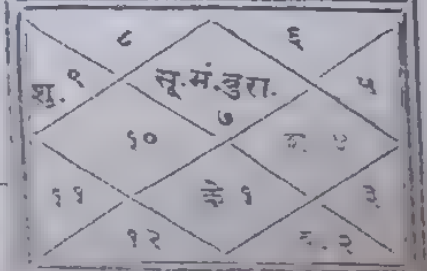 ८ ६
शु. ९ सू. मं. बुरा. ५
७
१० ४
११ के १ ३
१२ २